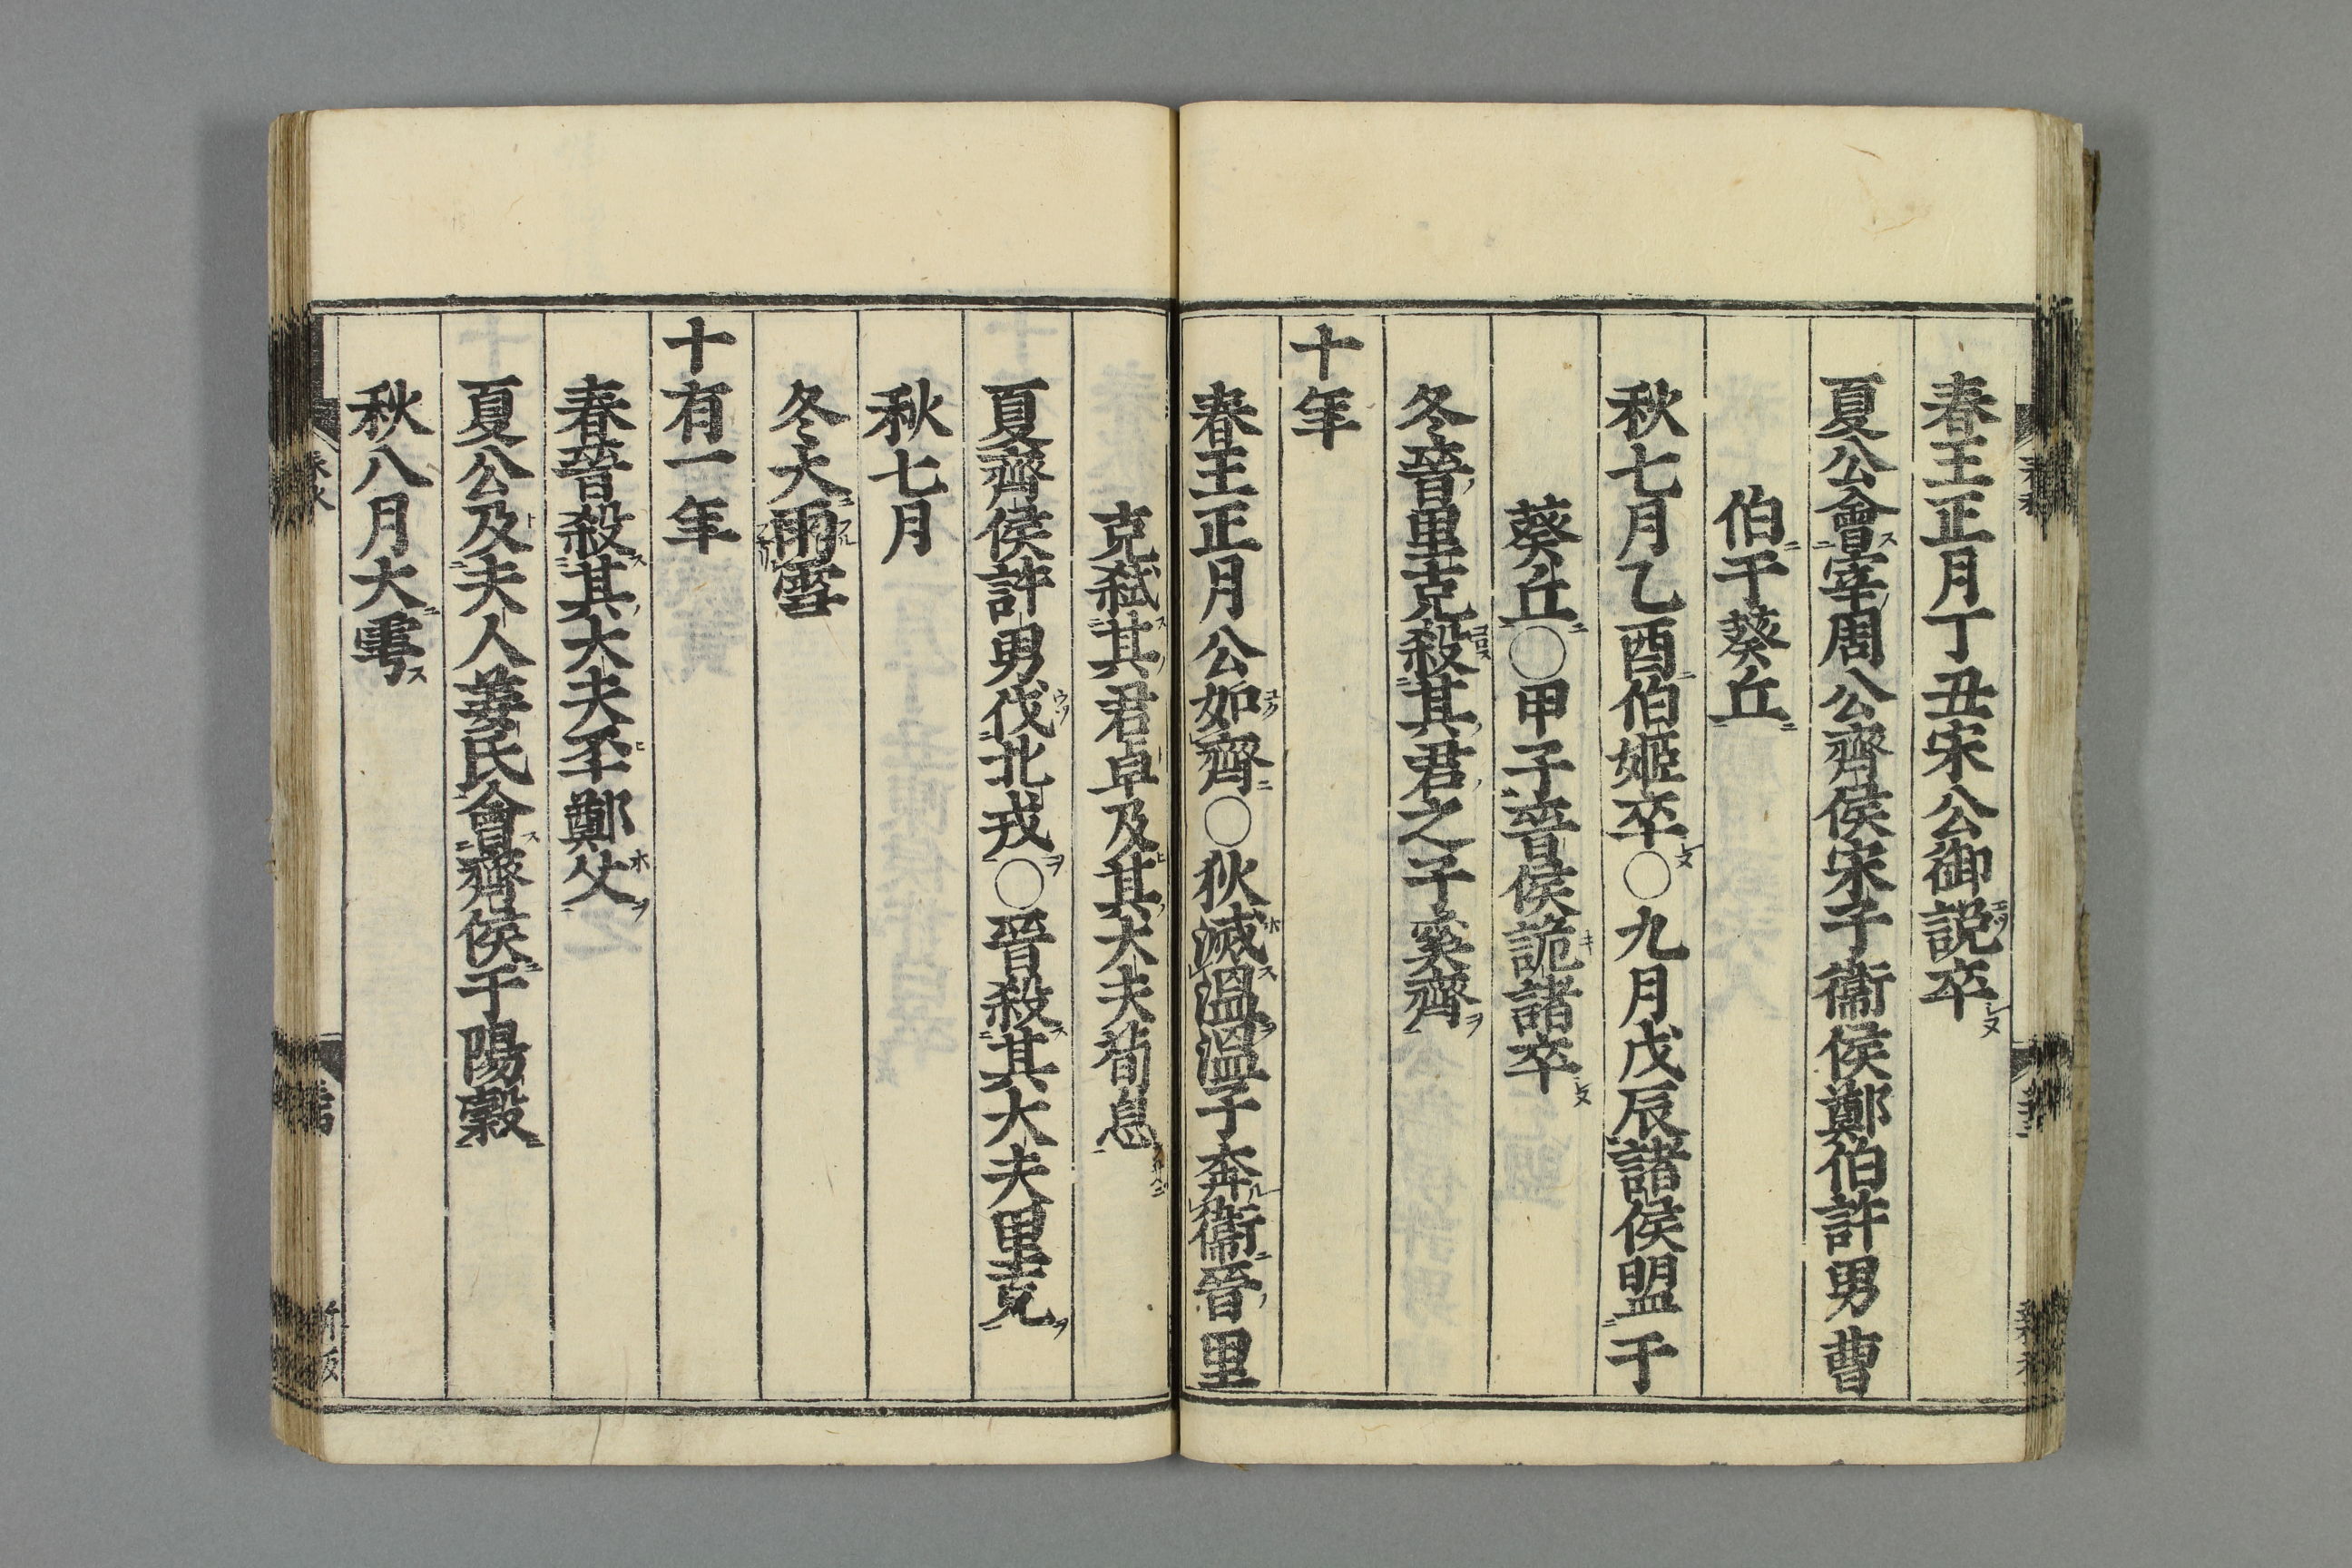 春王正月丁丑宋公御説卒
夏公會宰周公齊侯宋子衞侯鄭伯許男曹
伯于葵丘
秋七月乙酉伯姬卒○九月戊辰諸侯盟于
葵丘○甲子晉侯詭諸卒
冬晉里克殺其君之子奚齊
十年
春王正月公如齊○狄滅溫溫子奔衞晉里
克弑其君卓及其大夫荀息
夏齊侯許男伐北戎○晉殺其大夫里克
秋七月
冬大雨雪
十有一年
春晉殺其大夫丕鄭父
夏公及夫人姜氏會齊侯于陽穀
秋八月大雩